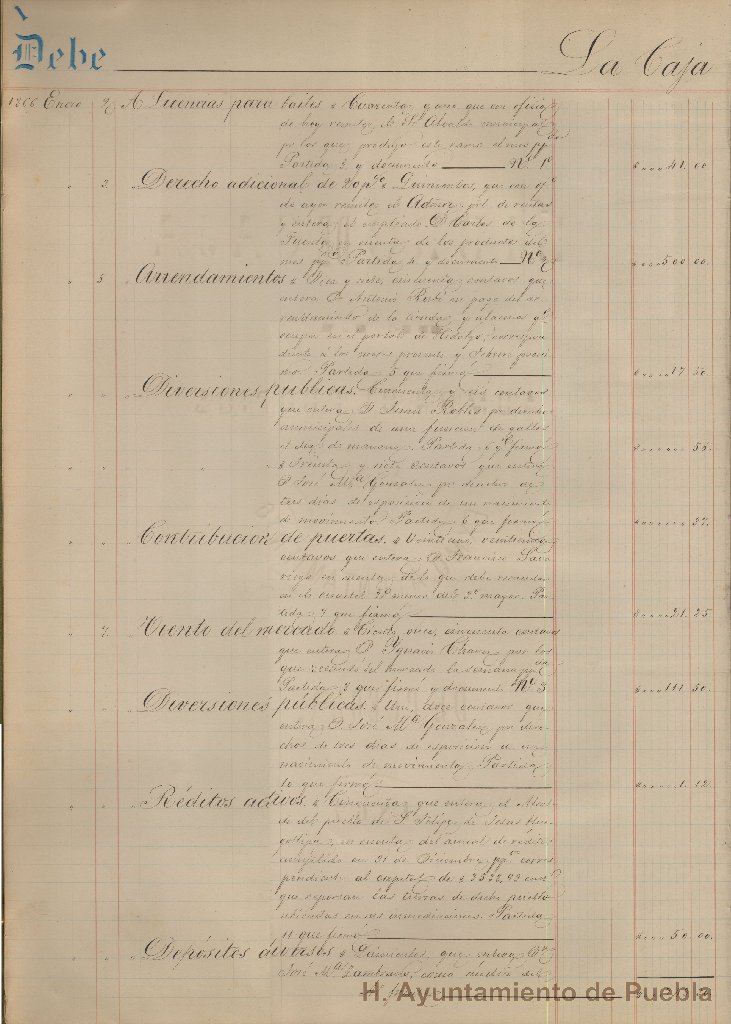 Debe La Caja
1866 Enero 2 A Licencias para bailes. Cuarenta y uno que con oficio
de hoy remite el Sr. Alcalde municipal
por los que produjo este ramo el mes pp.do
Partida 3 y documento Nº 1º 41 00
" 2 Derecho adicional de 20 p%. Quinientos, que con of.º
de ayer remite el Admor. pral. de rentas
y entera el empleado D. Carlos de la
Fuente, en cuenta de los productos del
mes pp.do Partida 4 y documento Nº 2 500 00
" 5 Arrendamientos. Diez y siete, cincuenta centavos que
entera D. Antonio en pago del ar-
rendamiento de la tienda y alacena qe.
ocupa en el portal de Hidalgo, correspon-
diente á los meses presente y Febrero procsi-
mo. Partida 5 que firmó 17 50
" " Diversiones públicas. Cincuenta y seis centavos
que entera D. Juan Robles por derechos
municipales de una funcion de gallos
el dia de mañana. Partida 6 qe. firmó 56
" " " Treinta y siete centavos que entera
D. José Ma. Gonzalez por derechos de
tres dias de esposicion de un nacimiento
de movimiento. Partida 6 que firmó 37
" " Contribucion de puertas. Veintiuno, veinticinco
centavos que entera D. Francisco
en cuenta de lo que debe recaudar
en el cuartel 2º menor del 3º mayor. Par-
tida 7 que firmó 21 25
" 7 Viento del mercado. Ciento once, cincuenta centavos
que entera D. Ygnacio Chavez por los
que recaudó del mercado la semana pp.da
Partida 8 que firmó y documento Nº 3 111 50
" " Diversiones públicas. Uno, doce centavos que
entera D. José Ma. Gonzalez por dere-
chos de tres dias de esposicion de un
nacimiento de movimiento. Partida
10 que firmó 1 12
" " Réditos activos. Cincuenta que entera el
del pueblo de S. Felipe de Jesus
en cuenta del anual de réditos
cumplido en 31 de Diciembre pp.º corres-
pondiente al capital de $ 3522,93 cent.
que reportan las tierras de dicho pueblo
ubicadas en sus inmediaciones. Partida
11 que firmó 50 00
" " Depósitos diversos. Quinientos que entera D.
José Ma. Zambrano, como
H. Ayuntamiento de Puebla